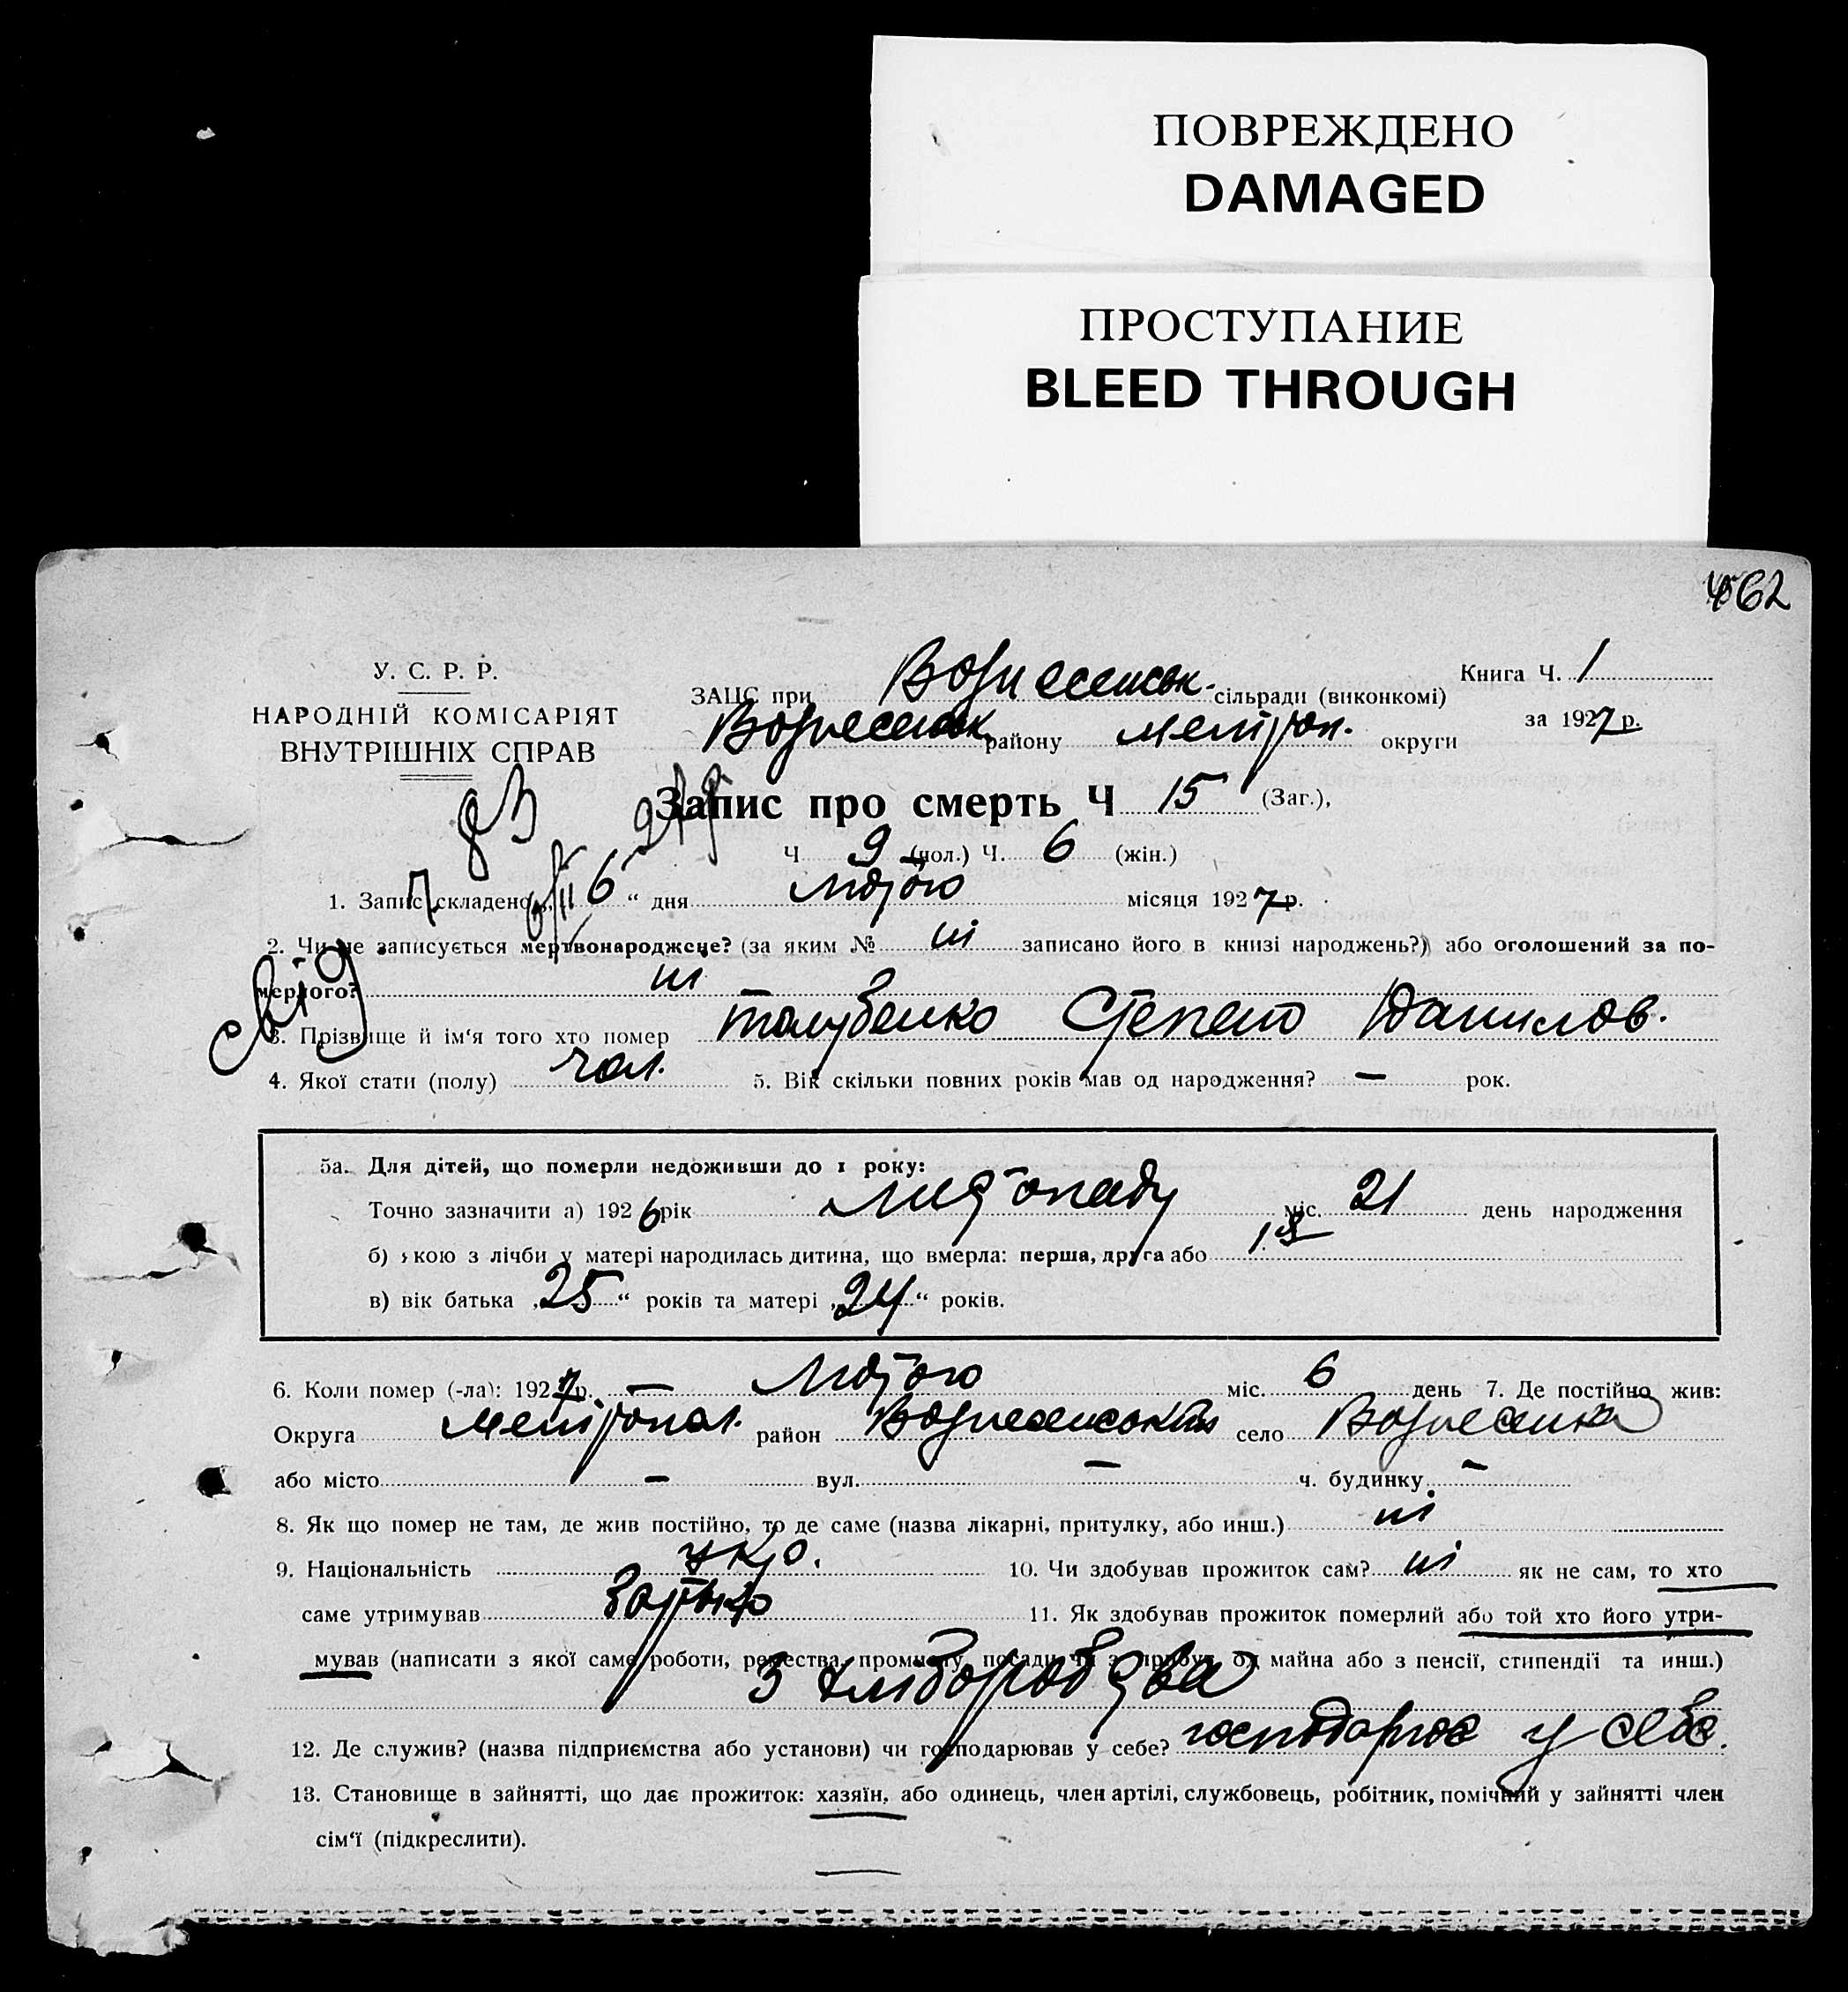 ПОВРЕЖДЕНО
DAMAGED
ПРОСТУПАНИЕ
BLEED THROUGH
62
У. С. Р. Р.
НАРОДНІЙ КОМІСАРІЯТ
ВНУТРІШНІХ СПРАВ
Книга Ч. 1
ЗАЦС при Вознесенськ. сільради (виконкомі)
за 1927 р.
Вознесенськ. району Мелітоп. округи
Запис про смерть Ч 15 (Заг.),
Ч 9 (чол.) Ч. 6 (жін.)
1. Запис складено „ 6 “ дня Лютого місяця 1927 р.
2. Чи не записується мертвонароджене? (за яким № ні записано його в книзі народжень?) або оголошений за по-
мерлого? ні
3. Прізвище й ім‘я того хто помер Голубенко Степан Данилов.
4. Якої стати (полу) чол. 5. Вік скільки повних років мав од народження? — рок.
5а. Для дітей, що померли недоживши до 1 року:
Точно зазначити а) 1926 рік Листопаду міс. 21 день народження
б) якою з лічби у матері народилась дитина, що вмерла: перша, друга або 1
в) вік батька „25“ років та матері „24“ років.
6. Коли помер (-ла): 1927 р. — Лютого міс. 6 день 7. Де постійно жив:
Округа Мелітопол. район Вознесенський село Вознесенка
або місто — вул. — ч. будинку —
8. Як що помер не там, де жив постійно, то де саме (назва лікарні, притулку, або инш.) ні
9. Національність укр. 10. Чи здобував прожиток сам? ні як не сам, то хто
саме утримував батько 11. Як здобував прожиток померлий або той хто його утри-
мував (написати з якої саме роботи, ремества, промислу, посади чи з прибут. од майна або з пенсії, стипендії та инш.)
З хліборобства
12. Де служив? (назва підприємства або установи) чи господарював у себе? господарює у себе.
13. Становище в зайнятті, що дає прожиток: хазяїн, або одинець, член артілі, службовець, робітник, помічний у зайнятті член
сім‘ї (підкреслити).